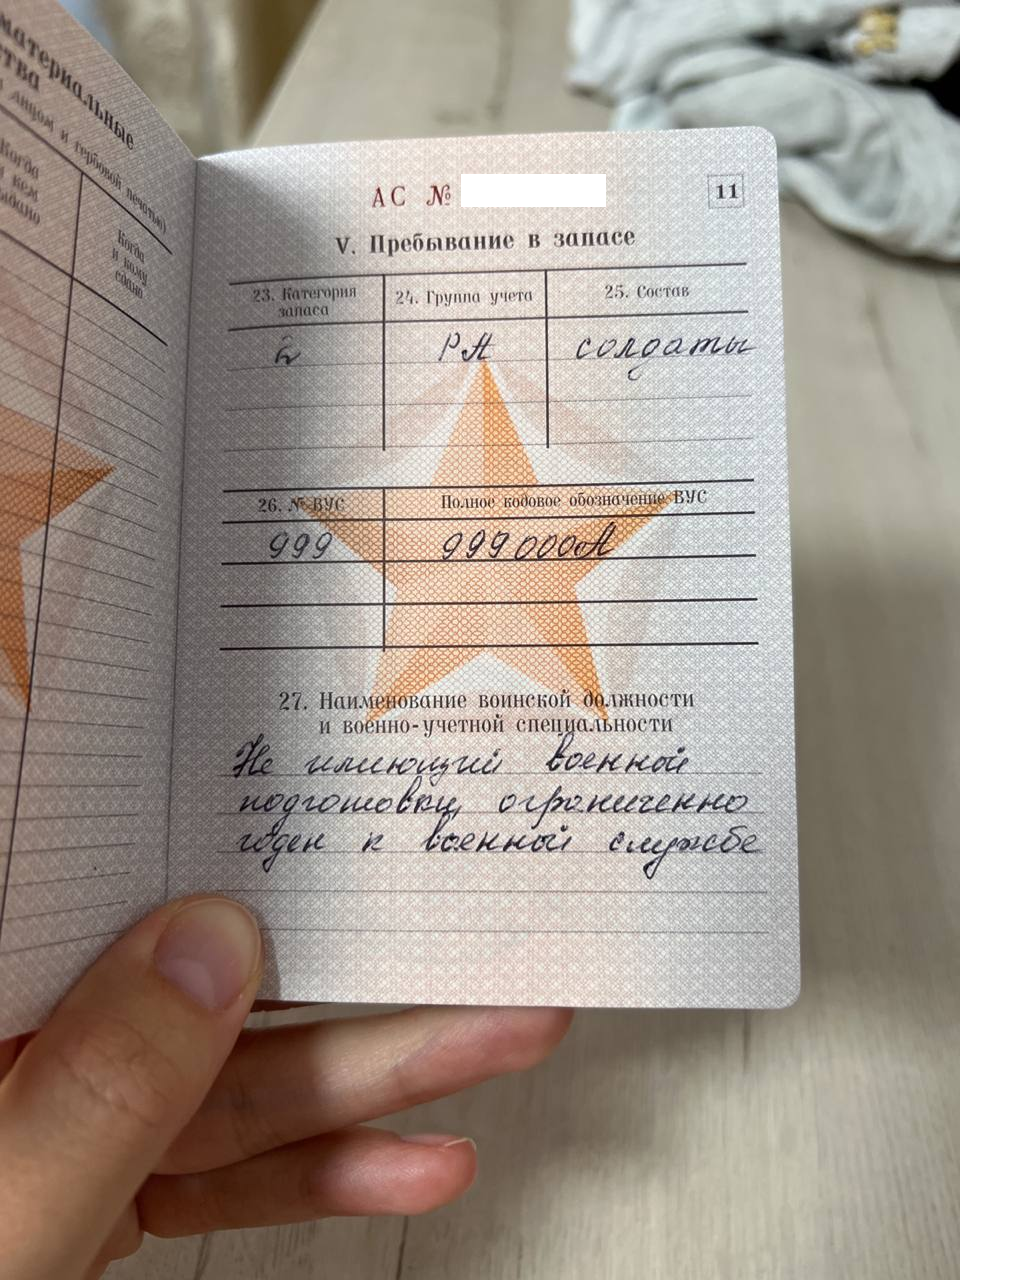 материальные
ства
лицом и гербовой печатью)
Когда
и кем
выдано
Когда
и кому
сдано
АС №
11
V. Пребывание в запасе
23. Категория запаса
24. Группа учета
25. Состав
2
РА
солдаты
26. № ВУС
Полное кодовое обозначение ВУС
999
999000А
27. Наименование воинской должности
и военно-учетной специальности
Не имеющий военной
подготовки, ограниченно
годен к военной службе